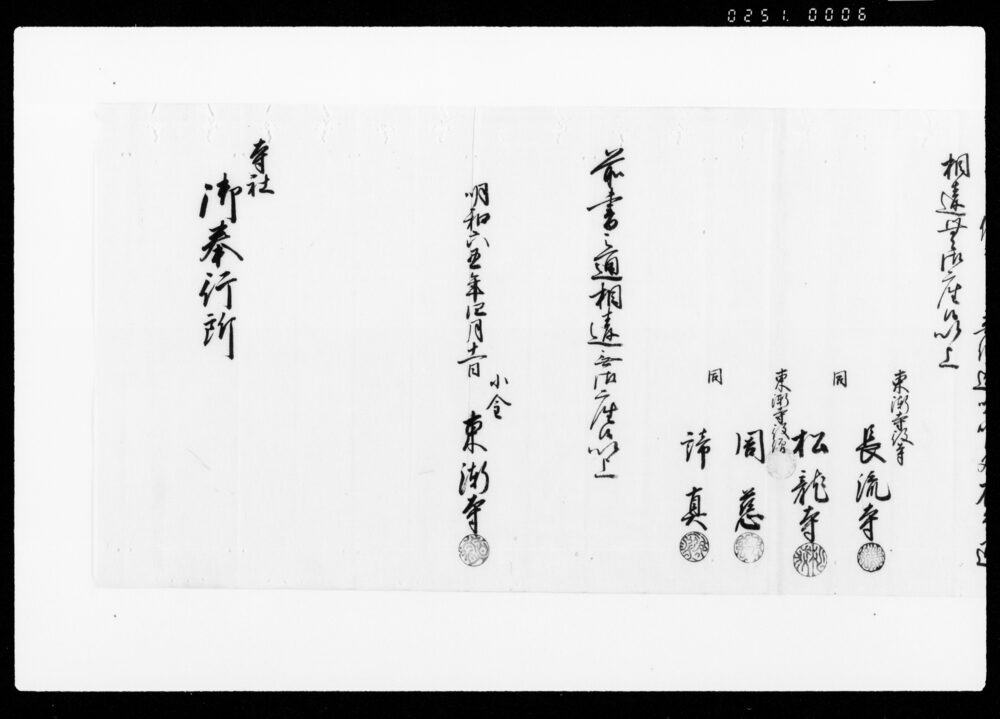 0251. 0006
相違無御座候以上
東漸寺役寺
長流寺
同
松龍寺
東漸寺役僧
周慈
同
諦真
前書之通相違無御座候以上
明和六丑年四月十一日
小倉
東漸寺
寺社
御奉行所